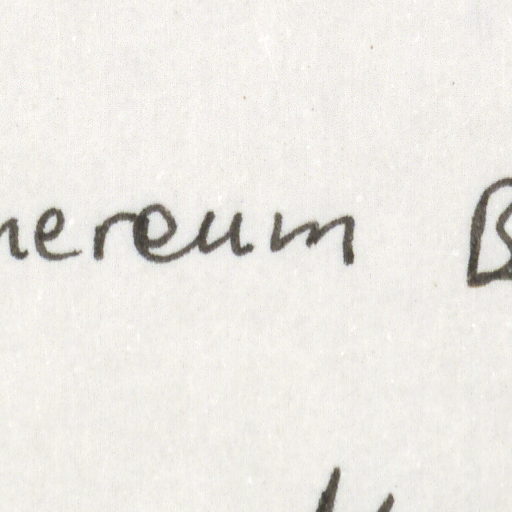 hereum B